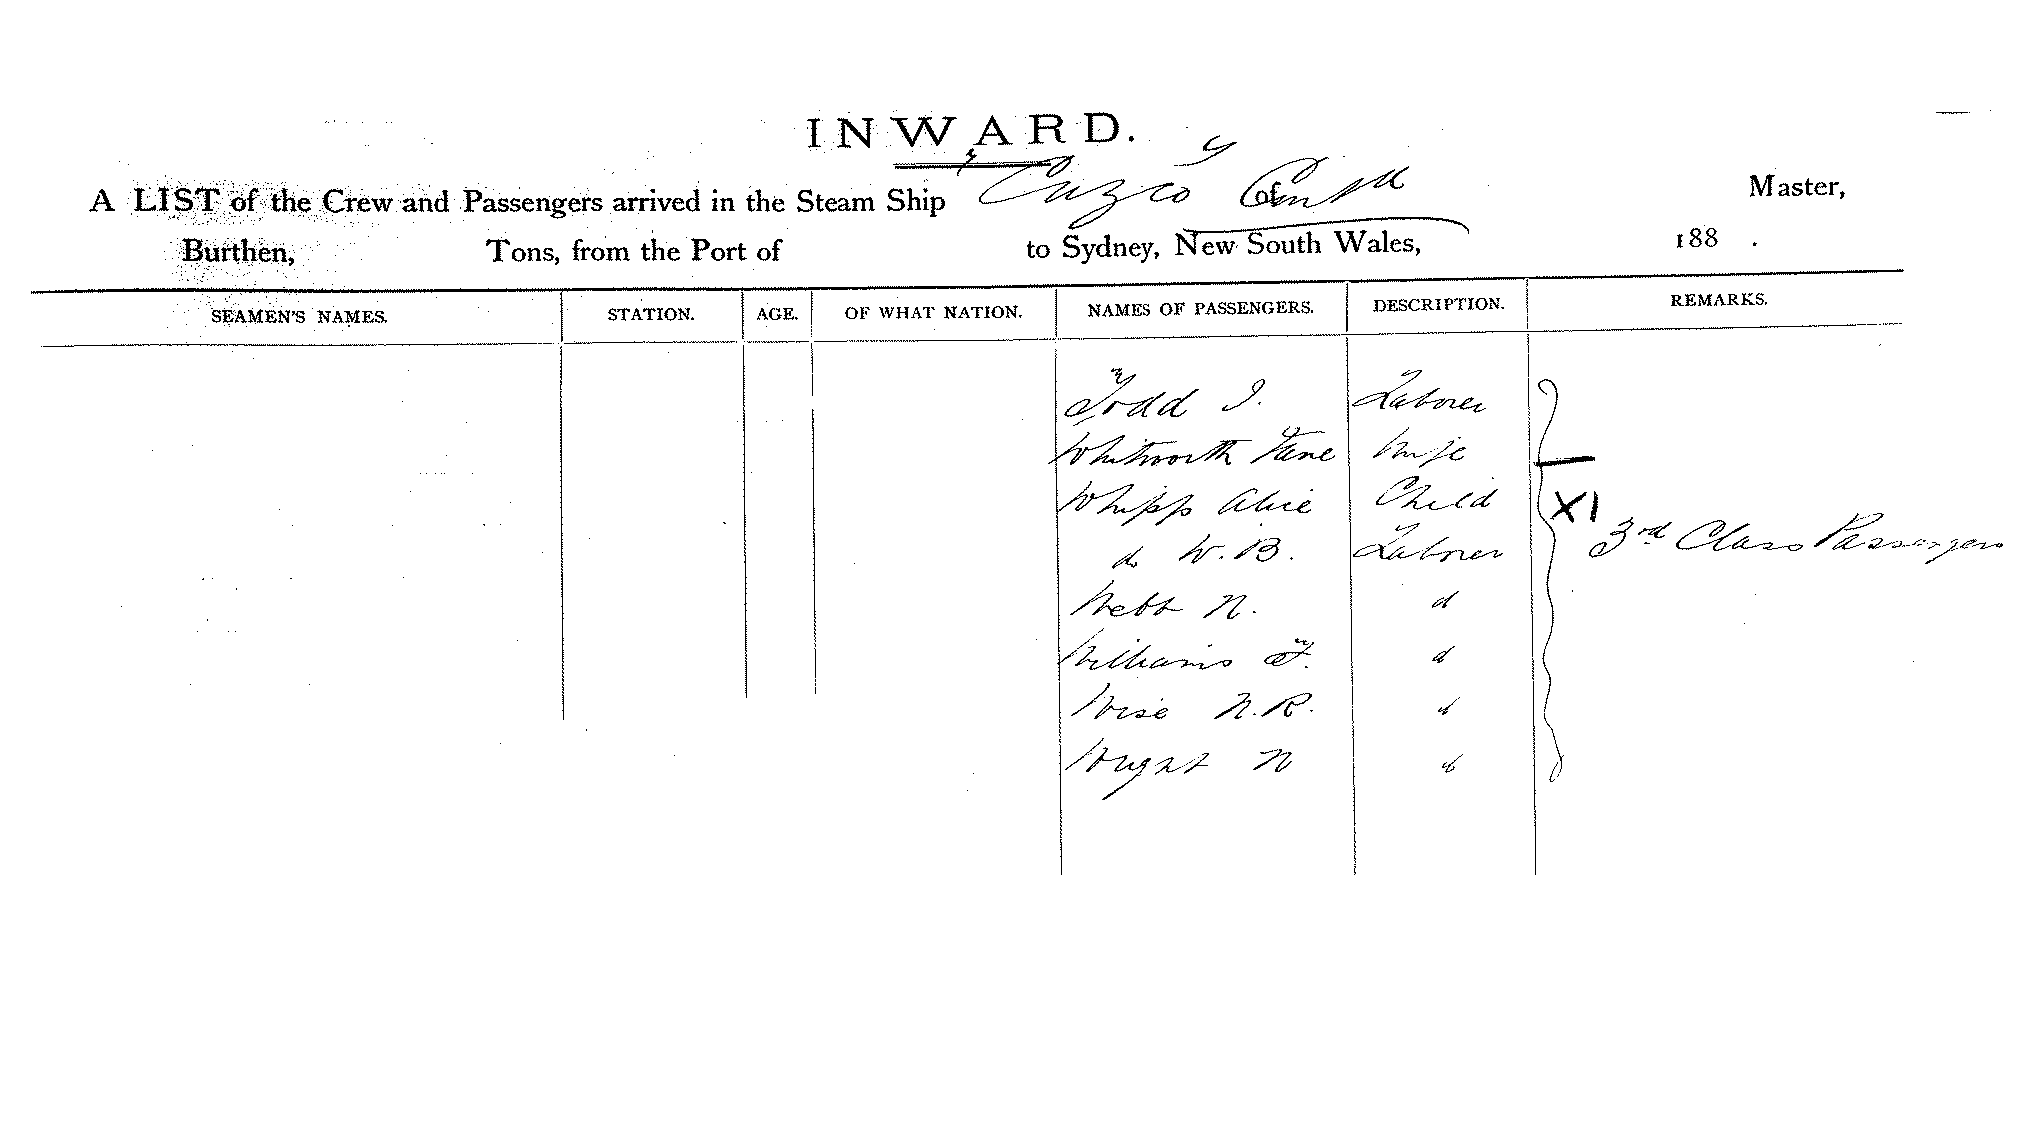 INWARD.
A LIST of the Crew and Passengers arrived in the Steam Ship Cuzco Contd of Master,
Burthen, Tons, from the Port of to Sydney, New South Wales, 188 .
SEAMEN'S NAMES. STATION. AGE. OF WHAT NATION. NAMES OF PASSENGERS. DESCRIPTION. REMARKS.
Todd J. Laborer
Whitworth Jane Wife
Whipp Alice Child X1
do W.B. Laborer 3rd Class Passengers
Webb N. d
Williams F. d
Wise N.R. d
Wright N d